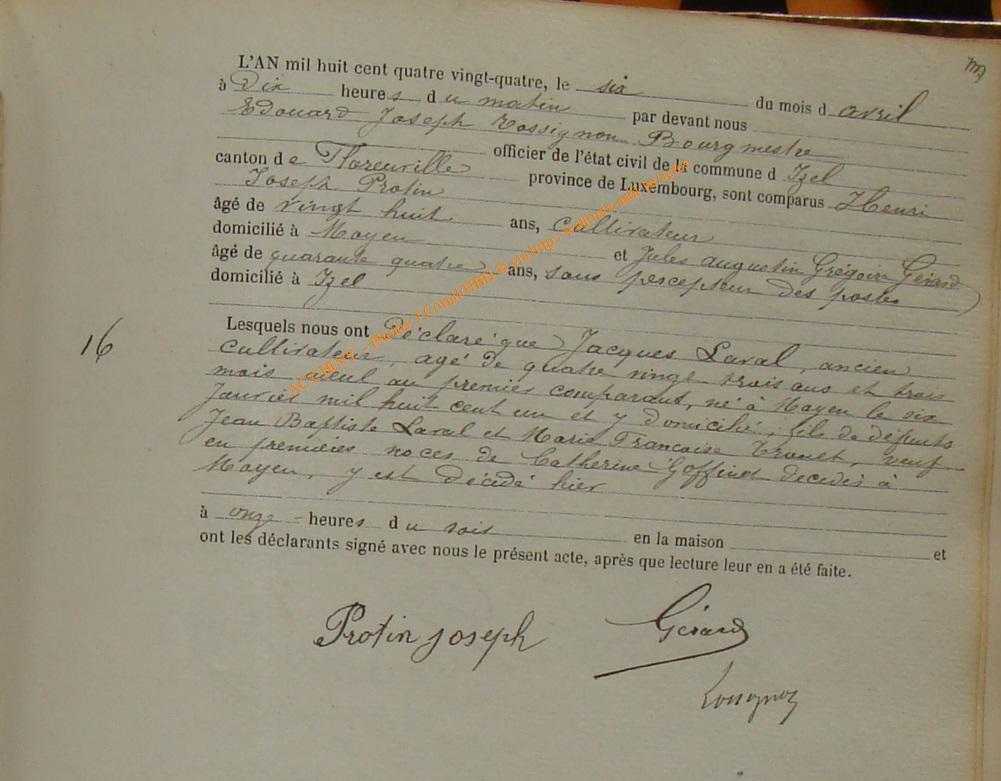 L'AN mil huit cent quatre vingt-quatre, le six du mois d avril
à Dix heures du matin par devant nous
Edouard Joseph Rossignon Bourgmestre
officier de l'état civil de la commune d Izel
canton de Florenville province de Luxembourg, sont comparus Henri
Joseph Protin
âgé de vingt huit ans, cultivateur
domicilié à Moyen et Jules Augustin Grégoire Gérard
âgé de quarante quatre ans, sous percepteur des postes
domicilié à Izel
16
Lesquels nous ont déclaré que Jacques Laval, ancien
cultivateur, agé de quatre vingt trois ans et trois
mois aieul au premier comparant, né à Moyen le six
Janvier mil huit cent un et y domicilié, fils de défunts
Jean Baptiste Laval et Marie Françoise, veuf
en premières noces de Catherine Goffinet décédés à
Moyen, y est décédé hier
à onze heures du soir en la maison et
ont les déclarants signé avec nous le présent acte, après que lecture leur en a été faite.
Protin joseph Gérard
Rossignon